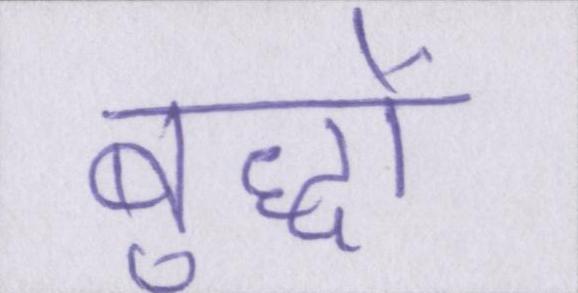 बुद्धों